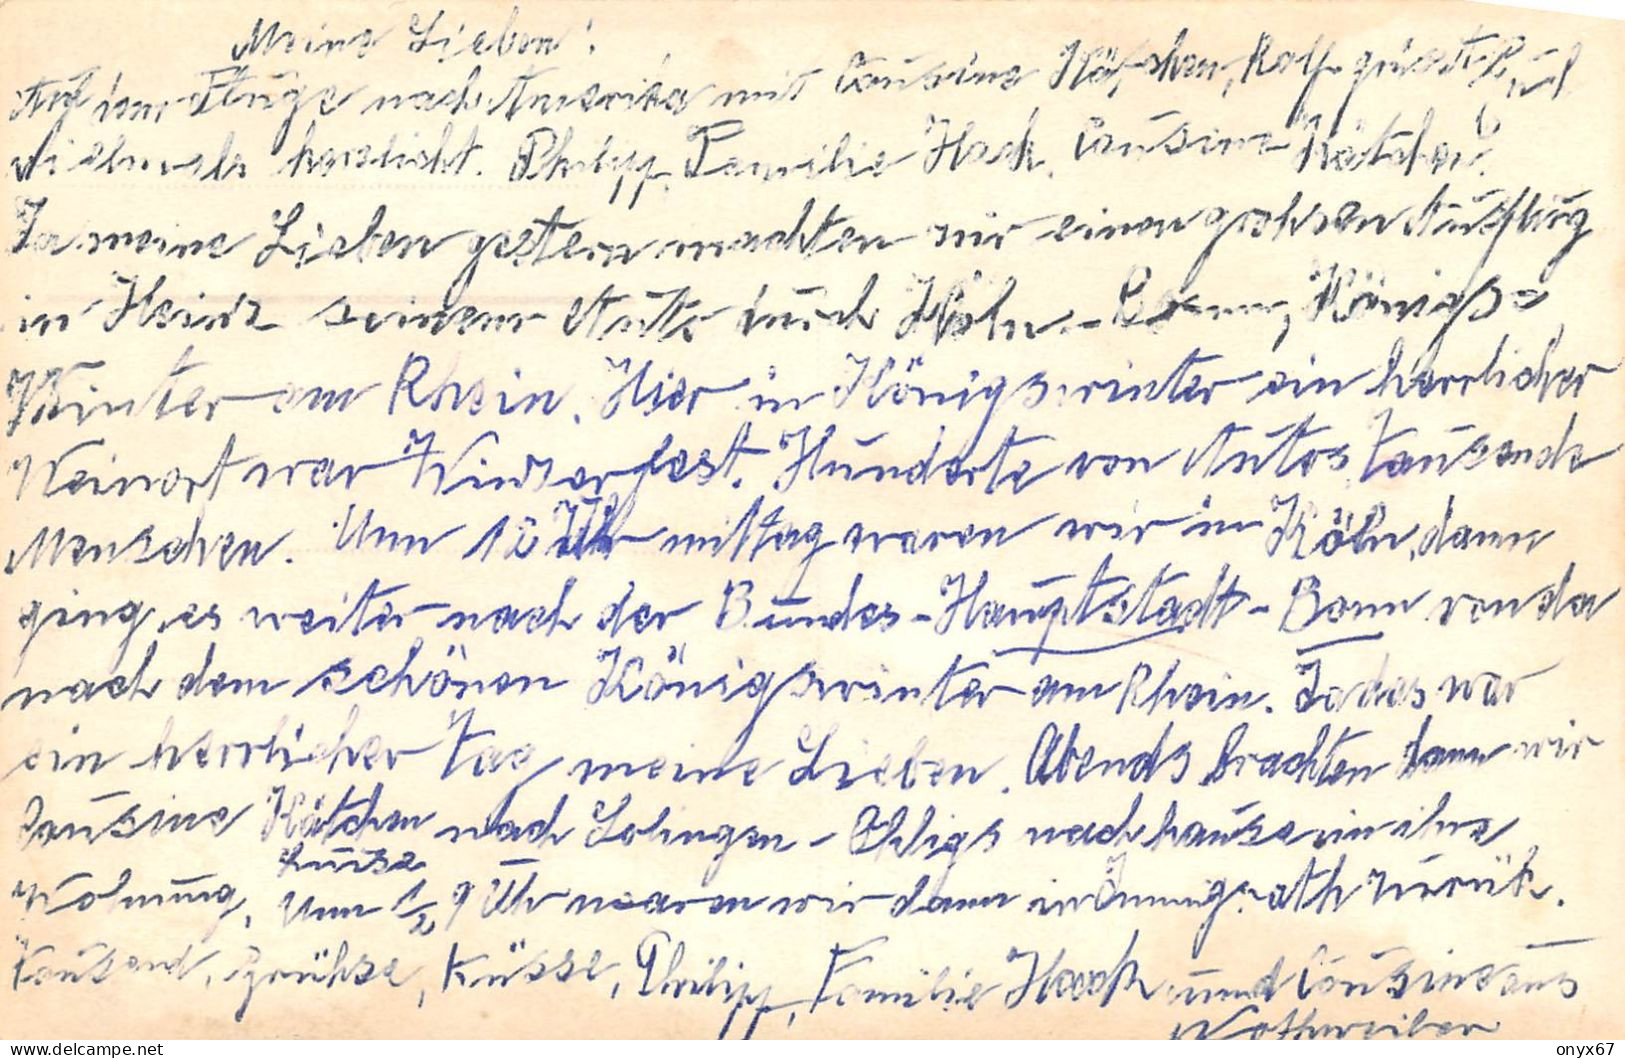 Meine Lieben!
Auf dem Fluge nach Amerika mit Cousine Kätchen, Ralf grüsst Euch
vielmals herzlicht. Philipp, Familie Hack. Cousine Kätchen.
Ja meine Lieben gestern machten wir einen grohsen Ausflug
in Heinz seinem Auto durch Köln - Bonn, Königs=
Winter am Rhein. Hier in Königswinter ein herrlicher
Weinort war Winzerfest. Hunderte von Autos, Tausende
Menschen. Um 12 Uhr mittag waren wir in Köln, dann
ging es weiter nach der Bundes-Hauptstadt - Bonn von da
nach dem schönen Königswinter am Rhein. Jades war
ein herrlicher Tag meine Lieben. Abends brachten dann wir
Cousine Kätchen nach Solingen - Ohligs nach hause in ihre
Luise
Wohnung. Um 1/2 9 Uhr waren wir dann in Immigrath zurük.
Tausend, Grühse, Küsse, Philipp, Familie Hack und Cousine aus
onyx67